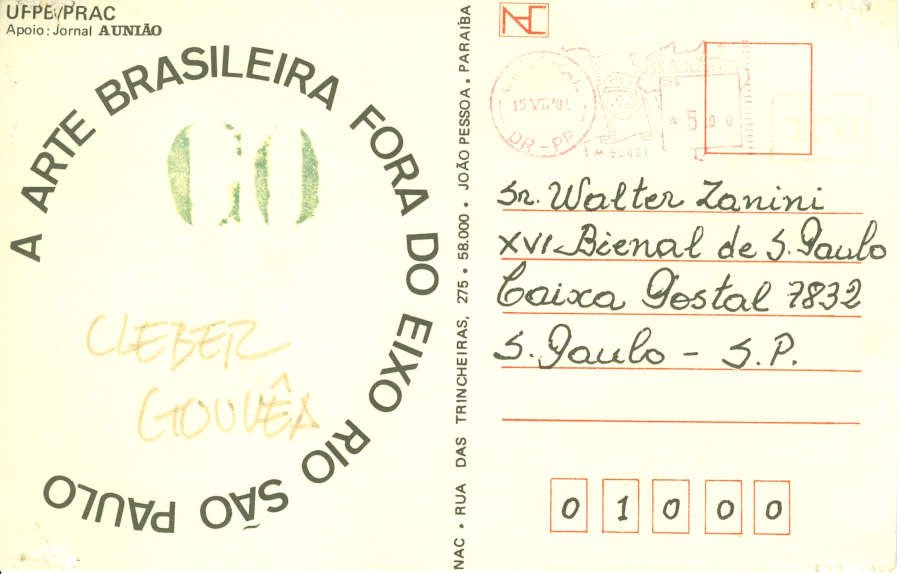 UFPB/PRAC
Apoio: Jornal A UNIÃO
A ARTE BRASILEIRA FORA DO EIXO RIO SÃO PAULO
GO
CLEBER
GOUVÊA
NAC • RUA DAS TRINCHEIRAS, 275 • 58.000 • JOÃO PESSOA • PARAÍBA
NAC
DR-PB
* 5 00
Sr. Walter Zanini
XVI Bienal de S. Paulo
Caixa Postal 7832
S. Paulo - S.P.
0 1 0 0 0